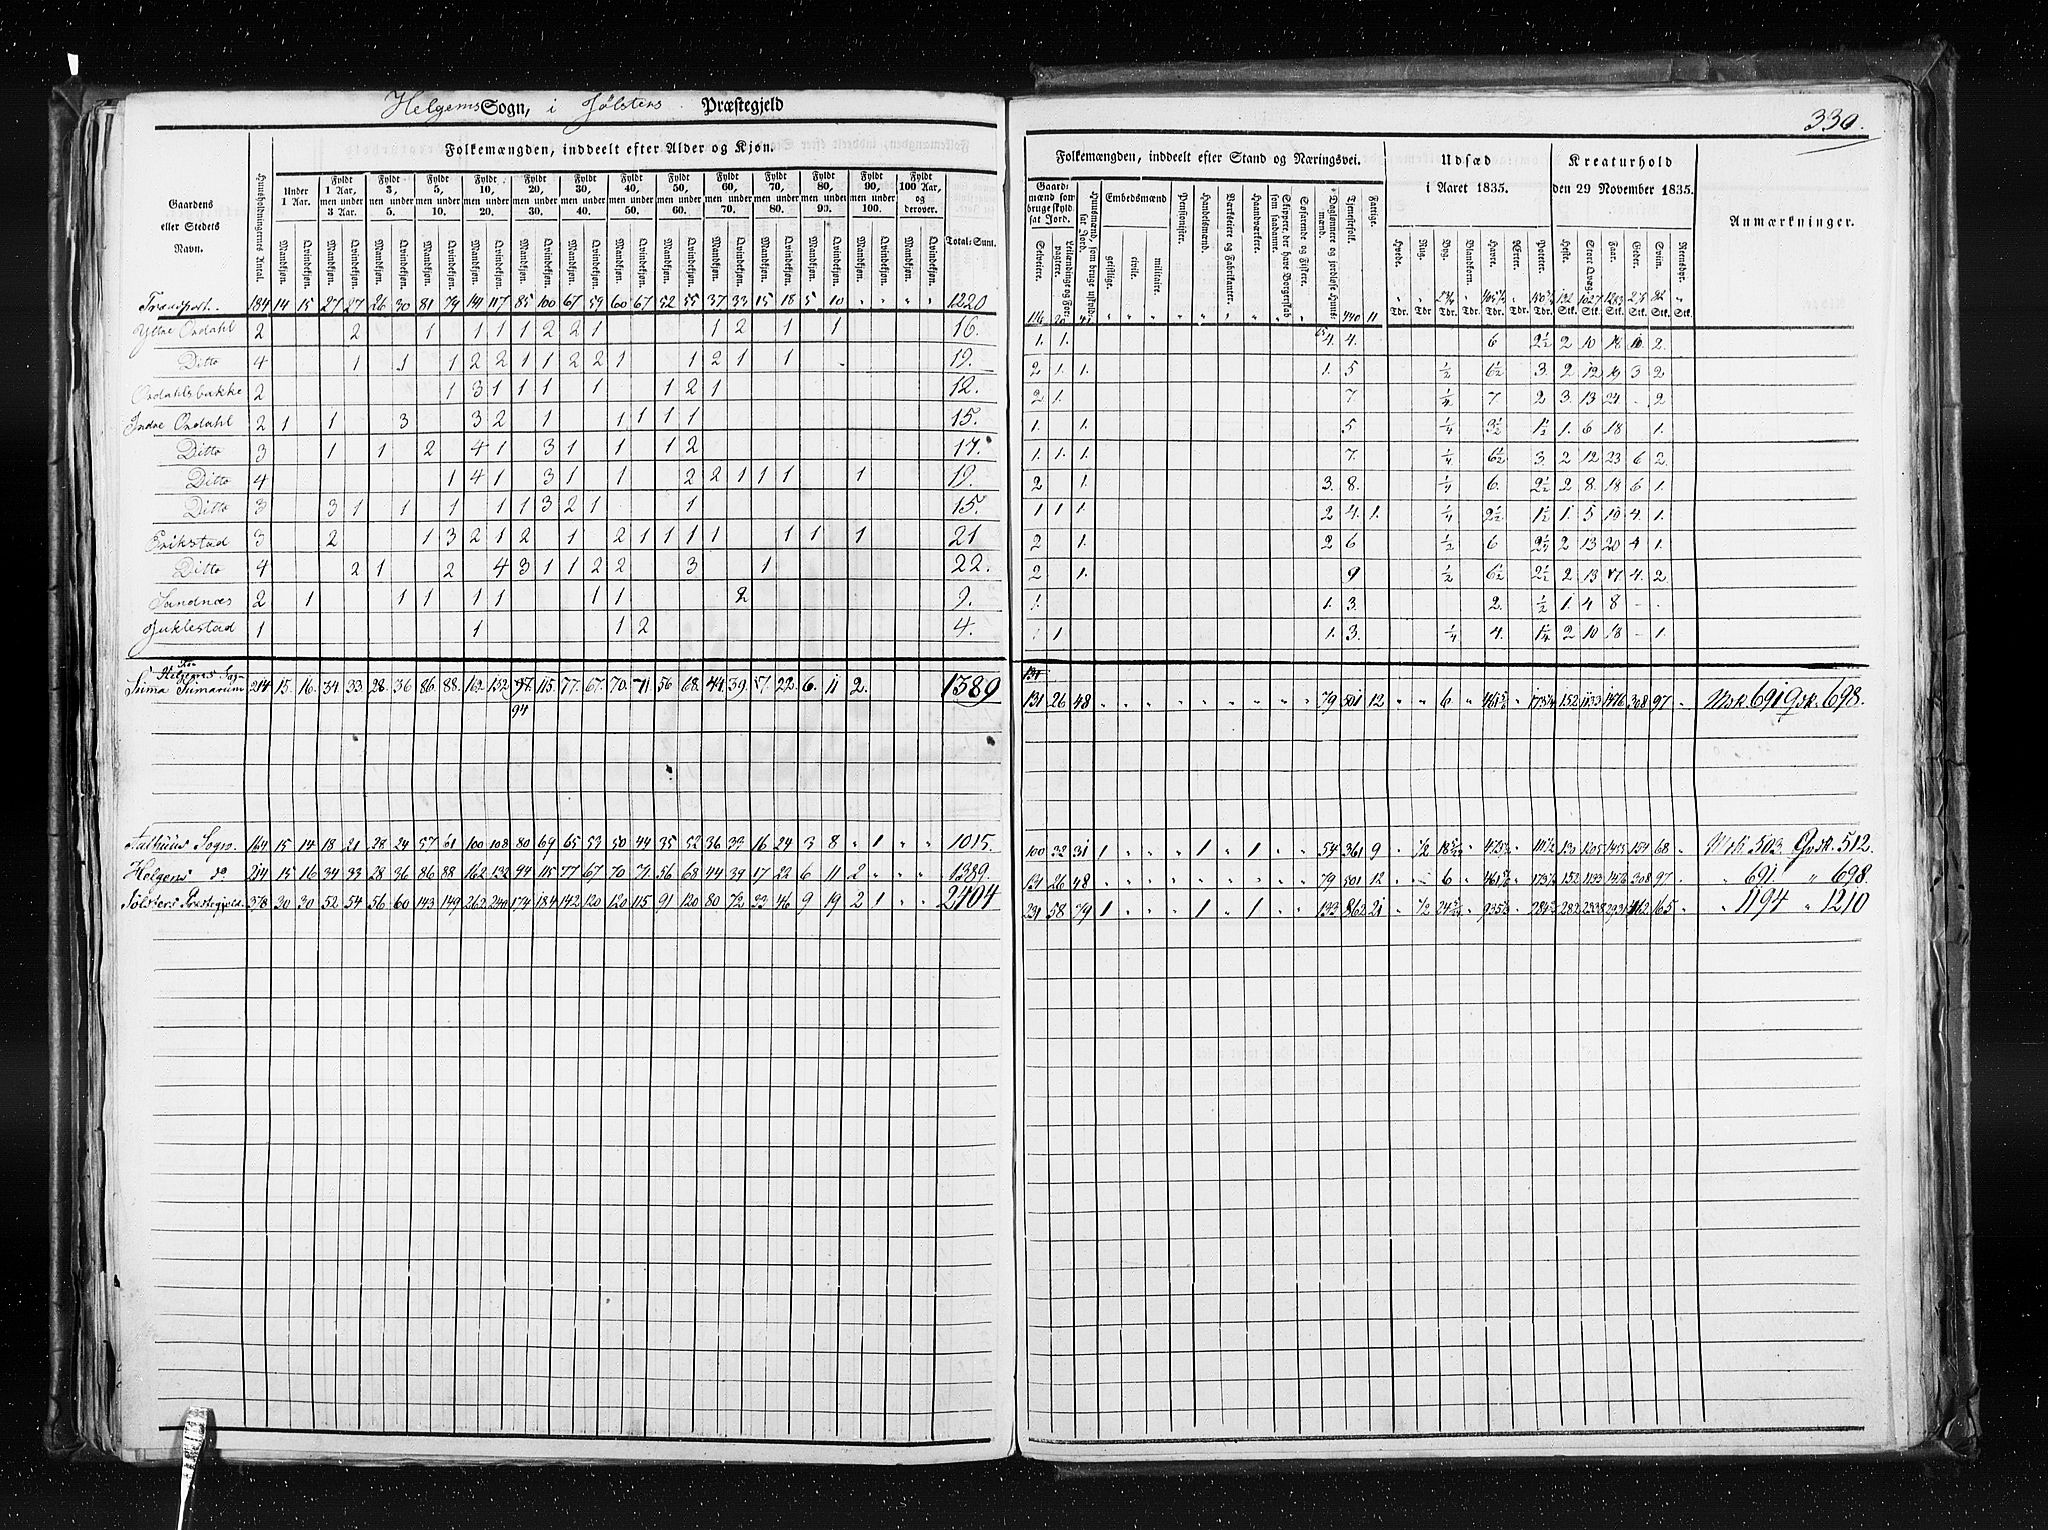 Helgems Sogn, i Jølsters Præstegjeld
330.
Folkemængden, inddeelt efter Alder og Kjøn.
Gaardens eller Stedets Navn.
Huusholdningernes Antal.
Under 1 Aar.
Fyldt 1 Aar, men under 3 Aar.
Fyldt 3, men under 5.
Fyldt 5, men under 10.
Fyldt 10, men under 20.
Fyldt 20, men under 30.
Fyldt 30, men under 40.
Fyldt 40, men under 50.
Fyldt 50, men under 60.
Fyldt 60, men under 70.
Fyldt 70, men under 80.
Fyldt 80, men under 90.
Fyldt 90, men under 100.
Fyldt 100 Aar, og derover.
Total-Sum.
Mandkjøn. Qvindekjøn.
Transport. 184 14 15 27 27 26 30 81 79 141 117 85 100 67 59 60 67 52 55 37 33 15 18 5 10 " " " " 1220
Ytre Ordahl 2 2 1 1 1 1 2 2 1 1 2 1 1 16.
Ditto 4 1 1 1 2 2 1 1 2 2 1 1 2 1 1 19.
Ordahlsbakke 2 1 3 1 1 1 1 1 2 1 12.
Indre Ordahl 2 1 1 3 3 2 1 1 1 1 1 15.
Ditto 3 1 1 2 4 1 3 1 1 1 1 2 17.
Ditto 4 1 4 1 3 1 1 2 2 1 1 1 1 19.
Ditto 3 3 1 1 1 1 1 3 2 1 1 15.
Erikstad 3 2 1 3 2 1 2 1 2 1 1 1 1 1 1 1 21
Ditto 4 2 1 2 4 3 1 1 2 2 3 1 22.
Sandnæs 2 1 1 1 1 1 1 1 2 9.
Juklestad 1 1 1 2 4.
Helgems Sogn
Suma Sumarum 214 15. 16. 34 33. 28. 36 86. 88. 162 132 97. 115. 77. 67. 70. 71. 56 68. 44. 39. 17. 22. 6. 11 2. 1389
94
Aalhuus Sogn. 164 15 14 18 21 28 24 57 61 100 108 80 69 65 53 50 44 35 52 36 33 16 24 3 8 " 1 " " 1015.
Helgens do 214 15 16 34 33 28 36 86 88 162 132 94 115 77 67 70 71 56 68 44 39 17 22 6 11 2 " " " 1389.
Jølsters Præstegjeld. 378 30 30 52 54 56 60 143 149 262 240 174 184 142 120 120 115 91 120 80 72 33 46 9 19 2 1 " " 2404
Folkemængden, inddeelt efter Stand og Næringsvei.
Gaardmænd som bruge skyldsat Jord.
Selveiere.
Leilændinge og Forpagtere.
Huusmænd, som bruge uskyldsat Jord.
Embedsmænd
geistlige.
civile.
militaire.
Pensionister.
Handelsmænd.
Værkseiere og Fabrikanter.
Haandværkere.
Skippere, der have Borgerskab som saadanne.
Søfarende og Fiskere.
Daglønnere og jordløse Huusmænd.
Tjenestefolk.
Fattige.
Udsæd i Aaret 1835.
Hvede. Rug. Byg. Blandkorn. Havre. Erter. Poteter.
Kreaturhold den 29 November 1835.
Heste. Stort Qvæg. Faar. Geder. Sviin. Reensdyr.
Anmærkninger.
116 20 41 " " " " " " " " " 65 440 11
Tdr. Tdr. Tdr. Tdr. Tdr. Tdr. Tdr. Stk. Stk. Stk. Stk. Stk. Stk.
1. 1. 4. 4. 6 2½ 2 10 18 10. 2.
2 1. 1. 1. 5 ½ 6½ 3. 2 12 19 3 2
2 1. 7. ¼ 7 2 3. 13 24 - 2
1. 1. 5 ¼ 3½ 1½ 1. 6 18 1.
1. 1. 1. 7. ¼ 6½ 3. 2 12 23 6 2.
2 1. 3. 8. ¼ 6. 2½ 2 8. 18 6 1.
1 1 1. 2 4. 1. ¼ 2½ 1½ 1. 5 19 4. 1.
2 1. 2 6 ½ 6 2½ 2 13 20 4 1.
2 1. 9 ½ 6½ 2½ 2 13 17 4. 2
1. 1. 3. 2. ½ 1. 4 8 - -
1 1 1. 3. ¼ 4. 1¼ 2 10 18 - 1.
131
131 26 48 " " " " " " " " " 79 501 12 " " 6 " " 152 1133 1476 308 97 " Mdk. 691 Qvk. 698.
100 32 31 1 " " " 1 " 1 " " 54 361 9 " ½ " " 130 1205 1455 154 68 " Mdk 503 Qvdk. 512.
131 26 48 " " " " " " " " " 79 501 12 " " 6 " " 152 1133 1476 308 97 " " 691 " 698.
231 58 79 1 " " " 1 " 1 " " 133 862 21 " ½ " " 282 2338 2931 462 165 " " 1194 " 1210